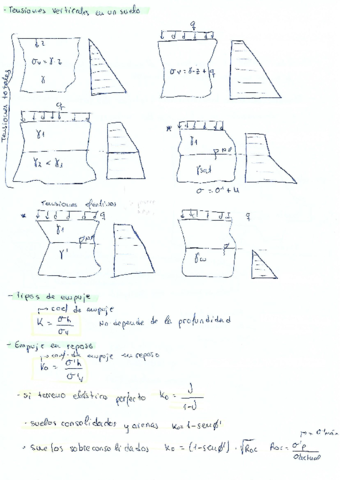 - Tensiones verticales en un suelo
Tensiones totales
z
σv = γ·z
γ
q
σv = γ·z + q
q
γ1
γ2 < γ1
* q
γ1
NF
γsat
σ = σ' + u
Tensiones efectivas
* q
γ1
NF
γ'
q
γω
- Tipos de empuje
coef de empuje
K = σ'h / σ'v No depende de la profundidad
- Empuje en reposo
coef. de empuje en reposo
K0 = σ'h / σ'v
· Si terreno elástico perfecto K0 = ν / 1-ν
· suelos consolidados y arenas K0 = 1-senφ'
· Suelos sobreconsolidados K0 = (1-senφ') · √Roc Roc = σ'p / σ'actual